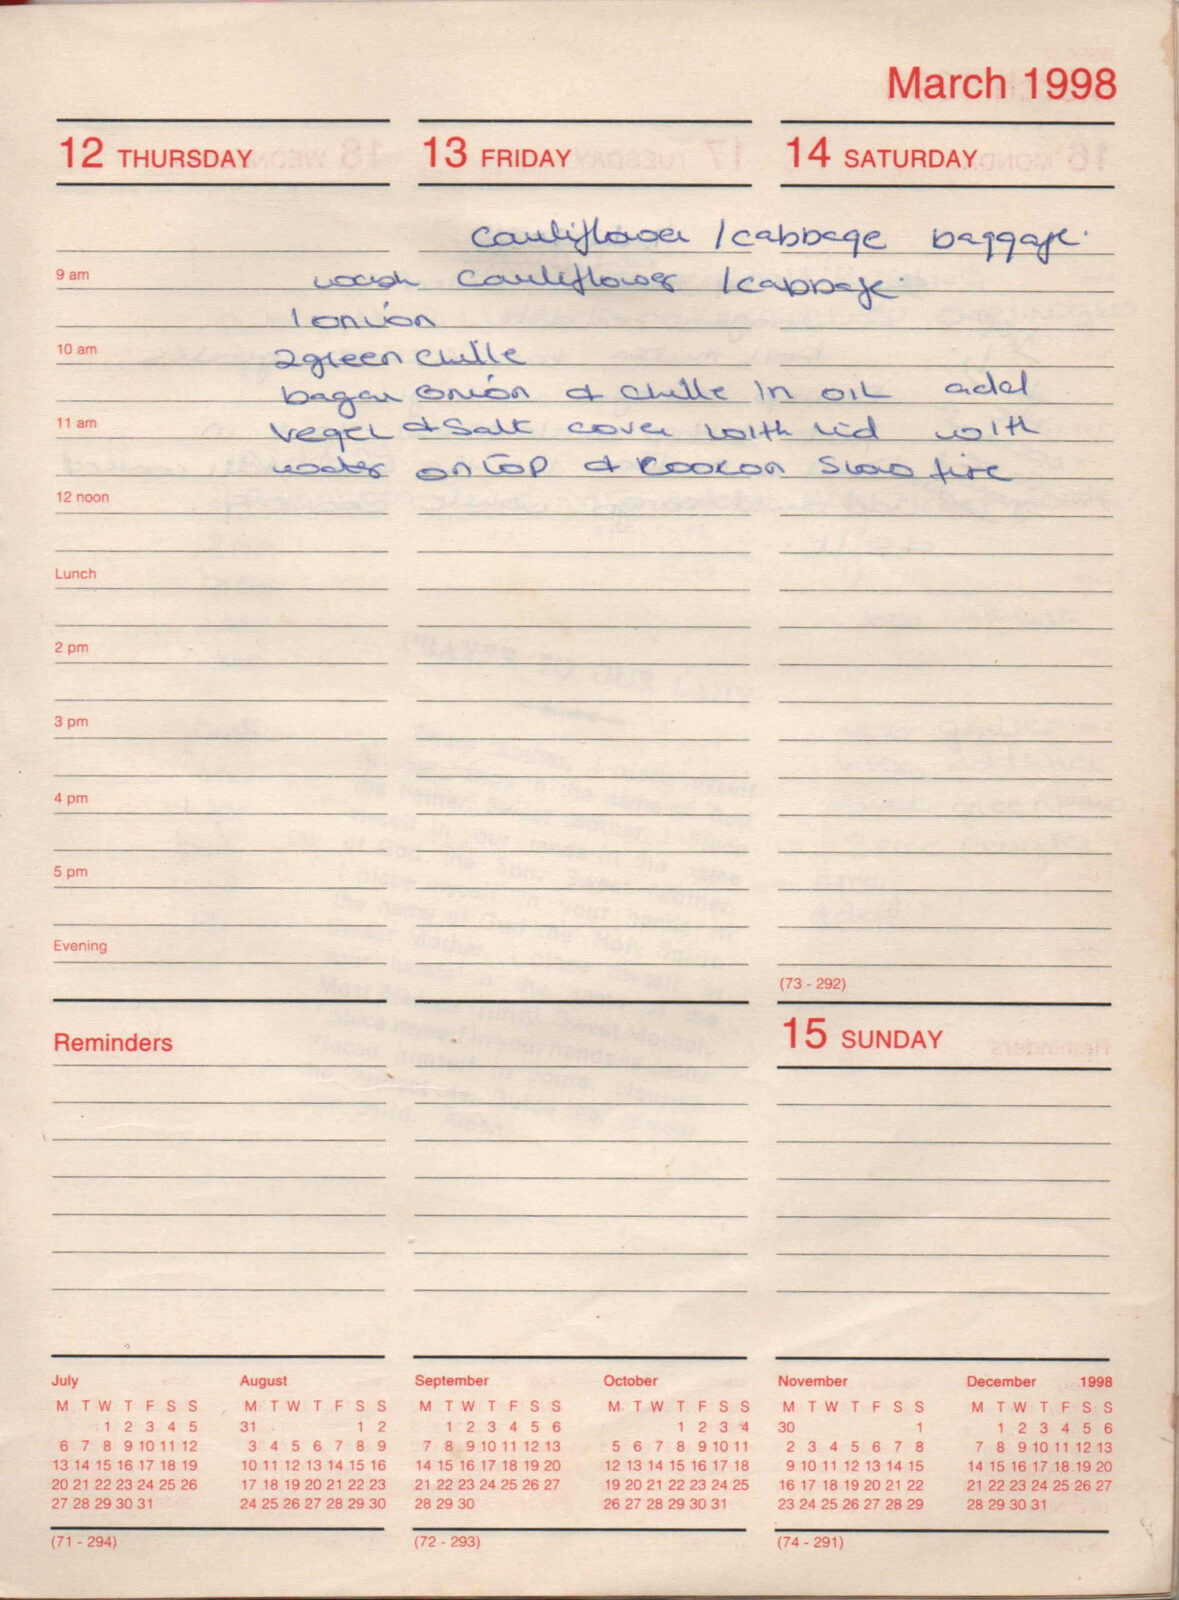 March 1998
12 THURSDAY 13 FRIDAY 14 SATURDAY
cauliflower / cabbage baggage.
9 am wash cauliflower / cabbage.
1 onion
10 am 2 green chille
bagar onion & chille in oil add
11 am veget & Salt cover with lid with
water on top & cook on slow fire
12 noon
Lunch
2 pm
3 pm
4 pm
5 pm
Evening
(73 - 292)
Reminders 15 SUNDAY
July August September October November December 1998
M T W T F S S M T W T F S S M T W T F S S M T W T F S S M T W T F S S M T W T F S S
1 2 3 4 5 31 1 2 1 2 3 4 5 6 1 2 3 4 30 1 1 2 3 4 5 6
6 7 8 9 10 11 12 3 4 5 6 7 8 9 7 8 9 10 11 12 13 5 6 7 8 9 10 11 2 3 4 5 6 7 8 7 8 9 10 11 12 13
13 14 15 16 17 18 19 10 11 12 13 14 15 16 14 15 16 17 18 19 20 12 13 14 15 16 17 18 9 10 11 12 13 14 15 14 15 16 17 18 19 20
20 21 22 23 24 25 26 17 18 19 20 21 22 23 21 22 23 24 25 26 27 19 20 21 22 23 24 25 16 17 18 19 20 21 22 21 22 23 24 25 26 27
27 28 29 30 31 24 25 26 27 28 29 30 28 29 30 26 27 28 29 30 31 23 24 25 26 27 28 29 28 29 30 31
(71 - 294) (72 - 293) (74 - 291)